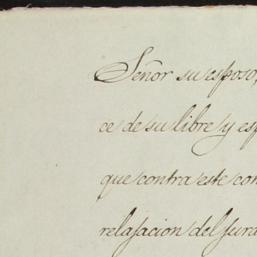 Señor su esposo,
ce de su libre y esp
que contra este con
relajacion del jura